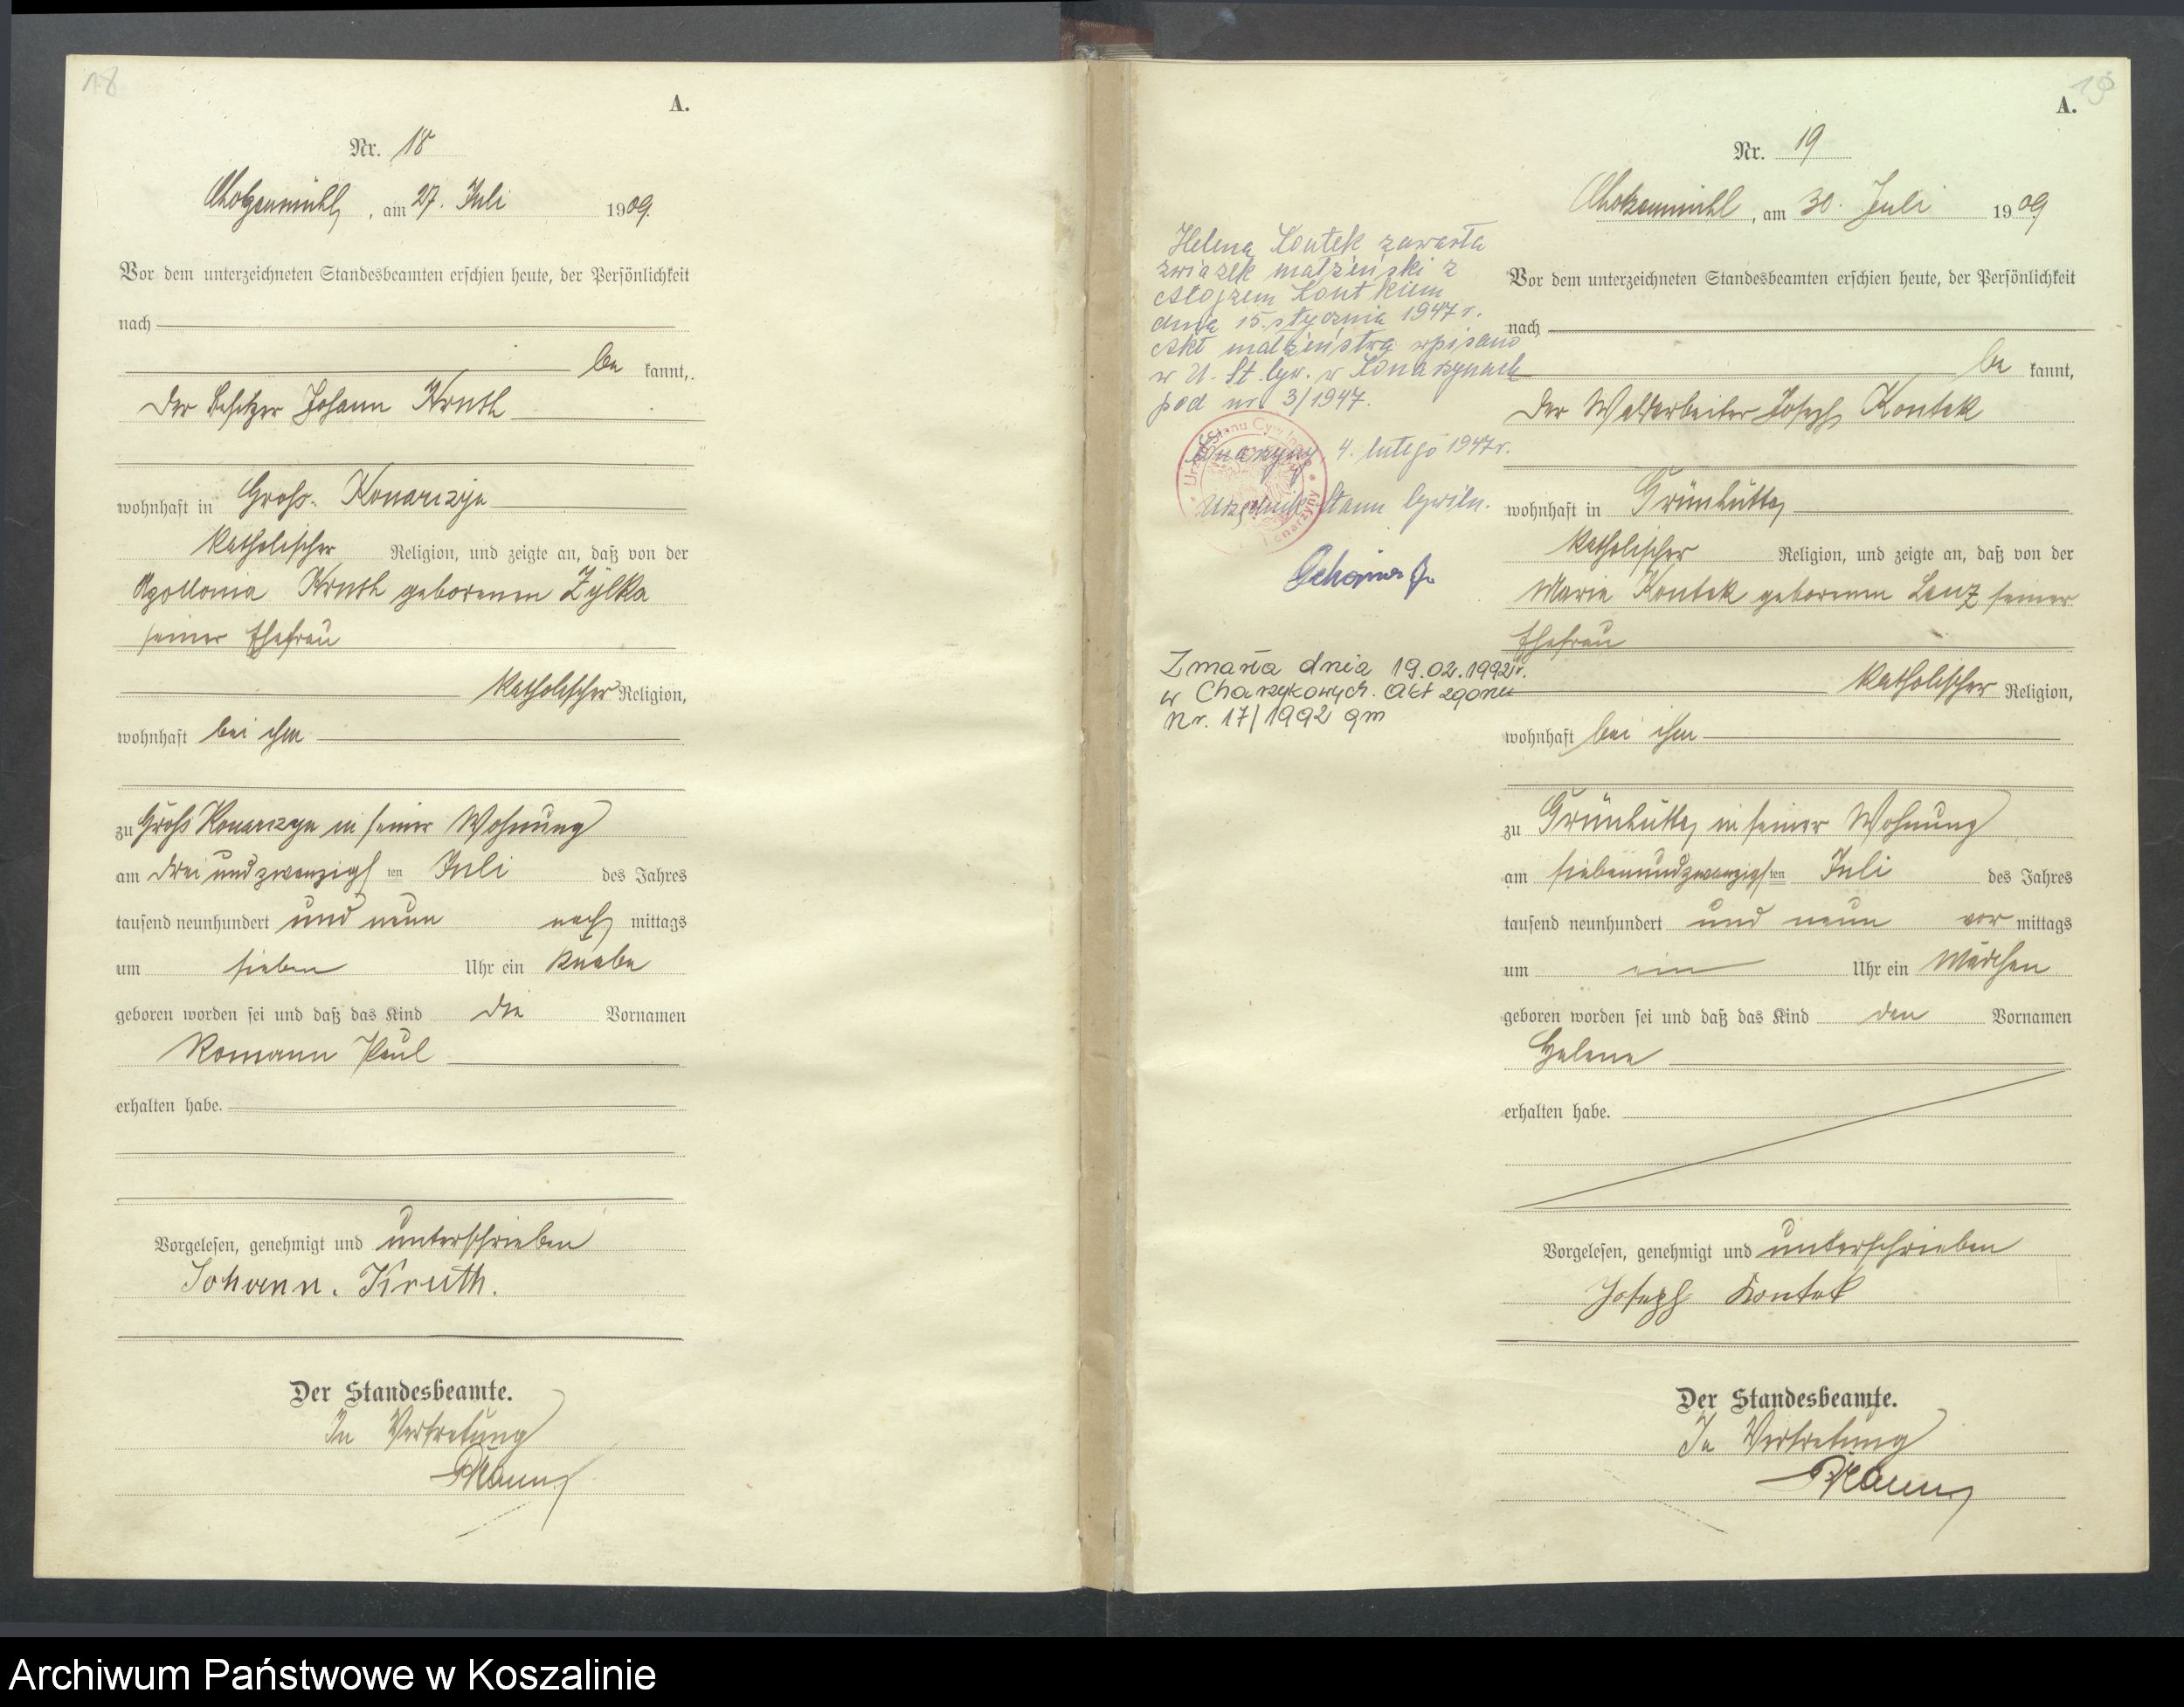 18
A.
Nr. 18
Chotzenmühl, am 27. Juli 1909.
Vor dem unterzeichneten Standesbeamten erschien heute, der Persönlichkeit
nach
be kannt,
der Besitzer Johann Kruth
wohnhaft in Groß-Konarczyn
katholischer Religion, und zeigte an, daß von der
Apollonia Kruth geborenen Zylka
seiner Ehefrau
katholischer Religion,
wohnhaft bei ihm
zu Groß Konarczyn in seiner Wohnung
am drei und zwanzigsten Juli des Jahres
tausend neunhundert und neun nach mittags
um sieben Uhr ein Knabe
geboren worden sei und daß das Kind die Vornamen
Romann Paul
erhalten habe.
Vorgelesen, genehmigt und unterschrieben
Johann. Kruth.
Der Standesbeamte.
In Vertretung
19
A.
Nr. 19
Chotzenmühl, am 30. Juli 1909
Vor dem unterzeichneten Standesbeamten erschien heute, der Persönlichkeit
nach
be kannt,
der Waldarbeiter Joseph Kontek
wohnhaft in Grünhütte
katholischer Religion, und zeigte an, daß von der
Marie Kontek geborenen Lenz seiner
Ehefrau
katholischer Religion,
wohnhaft bei ihm
zu Grünhütte, in seiner Wohnung
am siebenundzwanzigsten Juli des Jahres
tausend neunhundert und neun vor mittags
um ein Uhr ein Mädchen
geboren worden sei und daß das Kind den Vornamen
Helene
erhalten habe.
Vorgelesen, genehmigt und unterschrieben
Joseph Kontek
Der Standesbeamte.
In Vertretung
Helena Kontek zawarła
związek małżeński z
Alojzem Kontkiem
dnia 15. stycznia 1947 r.
Akt małżeństwa wpisano
w U. St. Cyw. w Konarzynach
pod nr. 3/1947.
Konarzyny, 4. lutego 1947 r.
Urzędnik Stanu Cywiln.
Zmarła dnia 19.02.1992 r.
w Charzykowych. Akt zgonu
Nr. 17/1992 gm
Archiwum Państwowe w Koszalinie